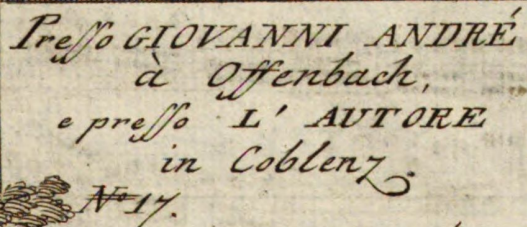 Presso GIOVANNI ANDRÉ
à Offenbach,
e presso L' AUTORE
in Coblenz.
No 17.